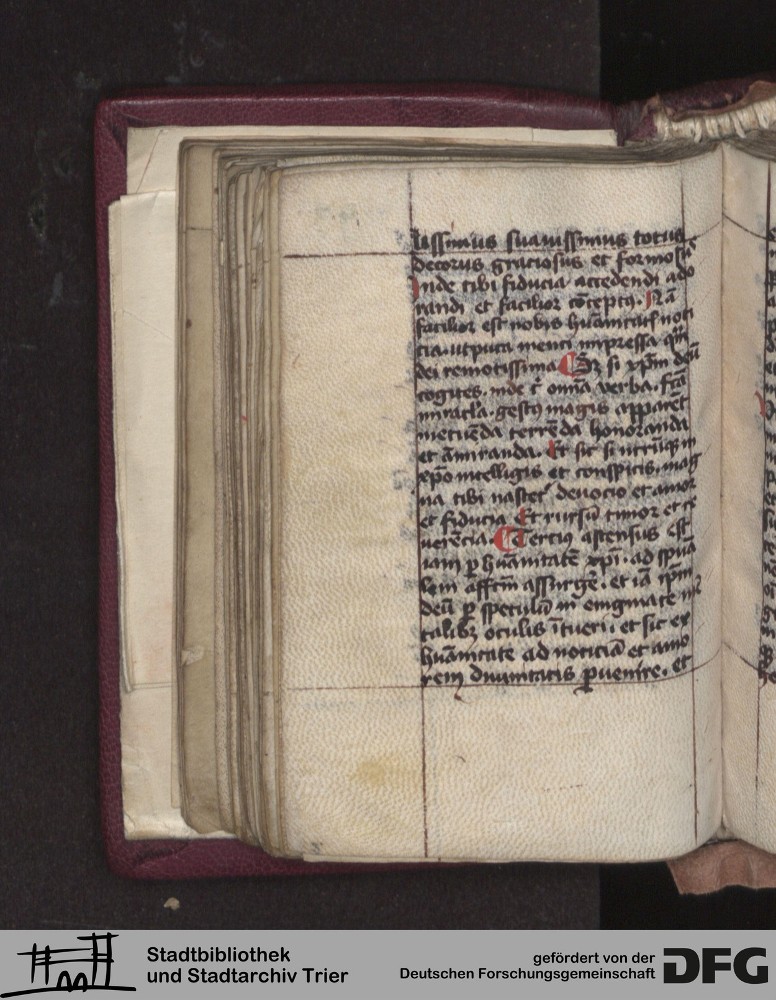 lissimus suauissimus totus
decorus graciosus et formosus
Inde tibi fiducia accedendi ado
randi et facilior cōceptꝯ. Nā
facilior est nobis hūanitatis noti
cia. utputa menti impressa qͣm
dei remotissima Sꝫ si xp̄m deū
cogites. inde ꝯ om̄ia verba. fc̄a
miracl̓a. gestꝯ magis apparēt
metuēda terrēda honoranda
et āmiranda. Et sic si utrūqꝫ in
xp̄o intelligis et conspicis. mag
na tibi nascet᷑ deuocio et amor
et fiducia Et rursū timor et re
uerēcia. Tercius ascensus est
iam ꝑ hūanitatē xp̄i. ad sp̄ua
lem affc̄m assurgē. et iā ip̄m
deū ꝑ speculū in enigmate mē
talibꝫ oculis ītueri. et sic ex
hūanitate ad noticiā et amo
rem diuinitatis ꝑuenire. et
Stadtbibliothek
und Stadtarchiv Trier
gefördert von der
Deutschen Forschungsgemeinschaft
DFG